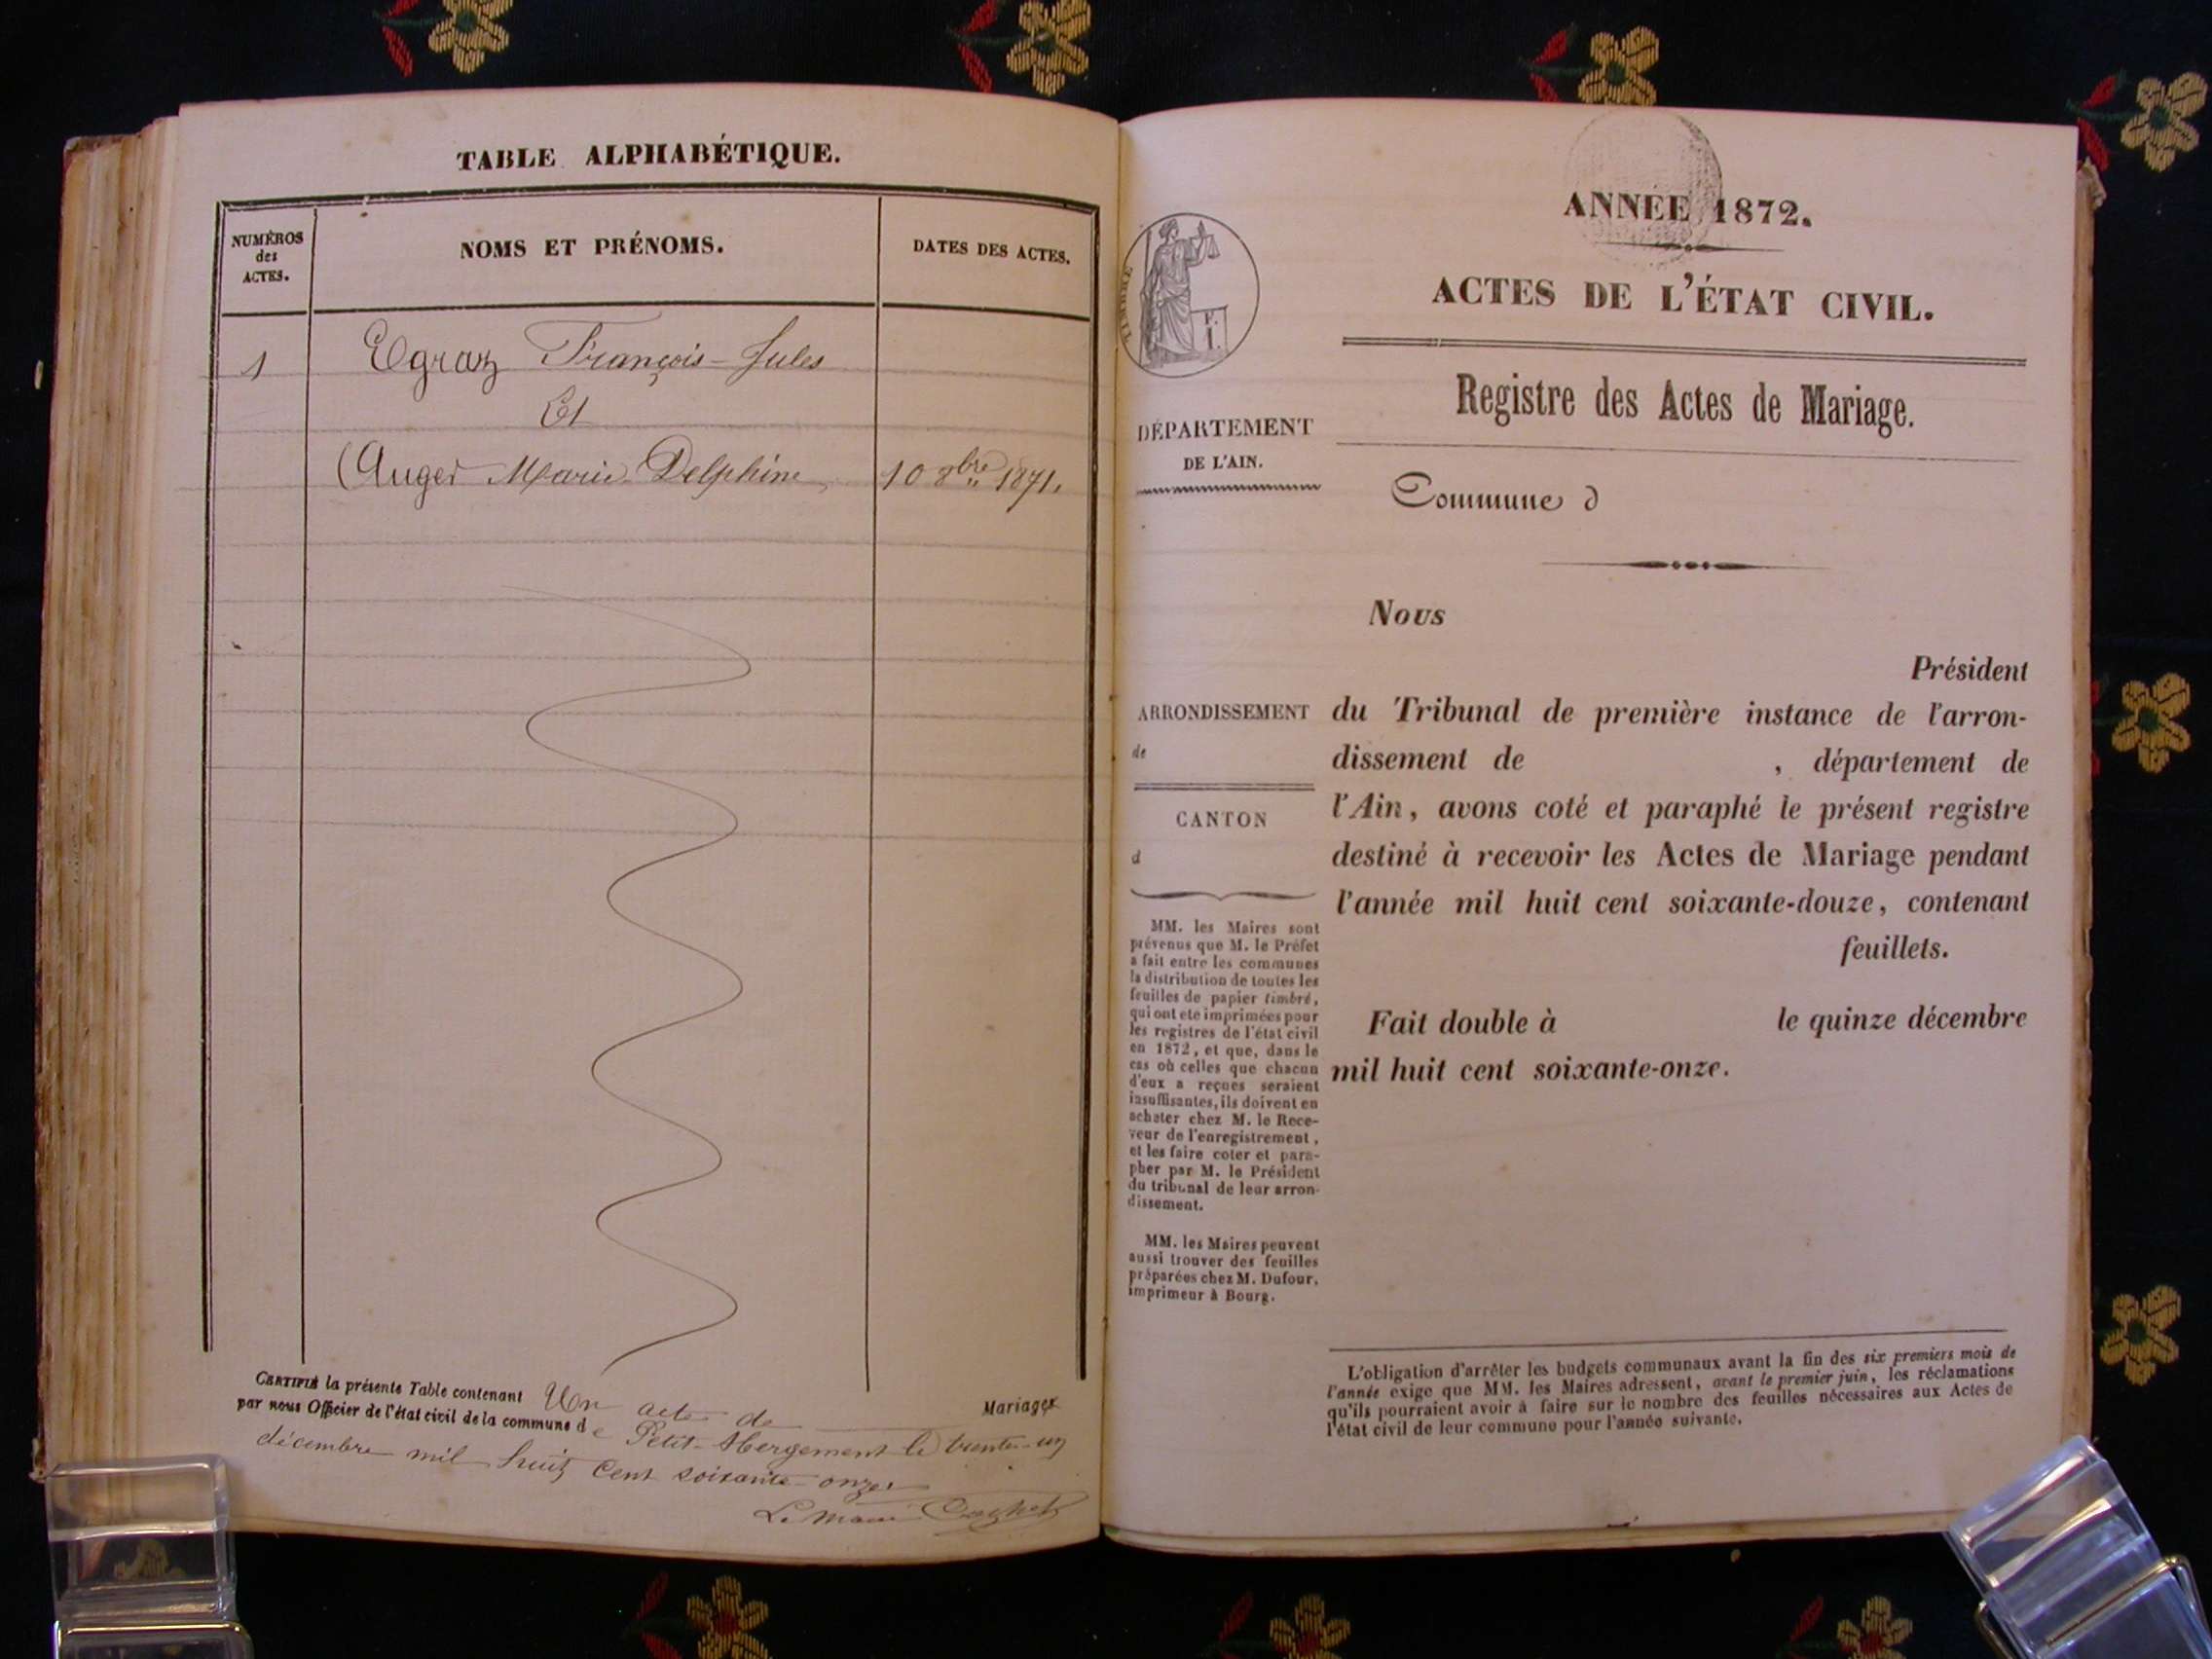 TABLE ALPHABÉTIQUE.
NUMÉROS
des
ACTES.
NOMS ET PRÉNOMS.
DATES DES ACTES.
1
Egraz François-Jules
Et
Auger Marie Delphine
10 8bre 1871.
CERTIFIÉ la présente Table contenant Un acte de Mariage
par nous Officier de l'état civil de la commune de Petit-Abergement le trente-un
décembre mil huit cent soixante-onze
Le Maire
ANNÉE 1872.
ACTES DE L'ÉTAT CIVIL.
TIMBRE
F.
I.
Registre des Actes de Mariage.
DÉPARTEMENT
DE L'AIN.
Commune d
Nous
Président
ARRONDISSEMENT
de
CANTON
d
du Tribunal de première instance de l'arron-
dissement de , département de
l'Ain, avons coté et paraphé le présent registre
destiné à recevoir les Actes de Mariage pendant
l'année mil huit cent soixante-douze, contenant
feuillets.
Fait double à le quinze décembre
mil huit cent soixante-onze.
MM. les Maires sont
prévenus que M. le Préfet
a fait entre les communes
la distribution de toutes les
feuilles de papier timbré,
qui ont été imprimées pour
les registres de l'état civil
en 1872, et que, dans le
cas où celles que chacun
d'eux a reçues seraient
insuffisantes, ils doivent en
acheter chez M. le Rece-
veur de l'enregistrement,
et les faire coter et para-
pher par M. le Président
du tribunal de leur arron-
dissement.
MM. les Maires peuvent
aussi trouver des feuilles
préparées chez M. Dufour,
imprimeur à Bourg.
L'obligation d'arrêter les budgets communaux avant la fin des six premiers mois de
l'année exige que MM. les Maires adressent, avant le premier juin, les réclamations
qu'ils pourraient avoir à faire sur le nombre des feuilles nécessaires aux Actes de
l'état civil de leur commune pour l'année suivante.